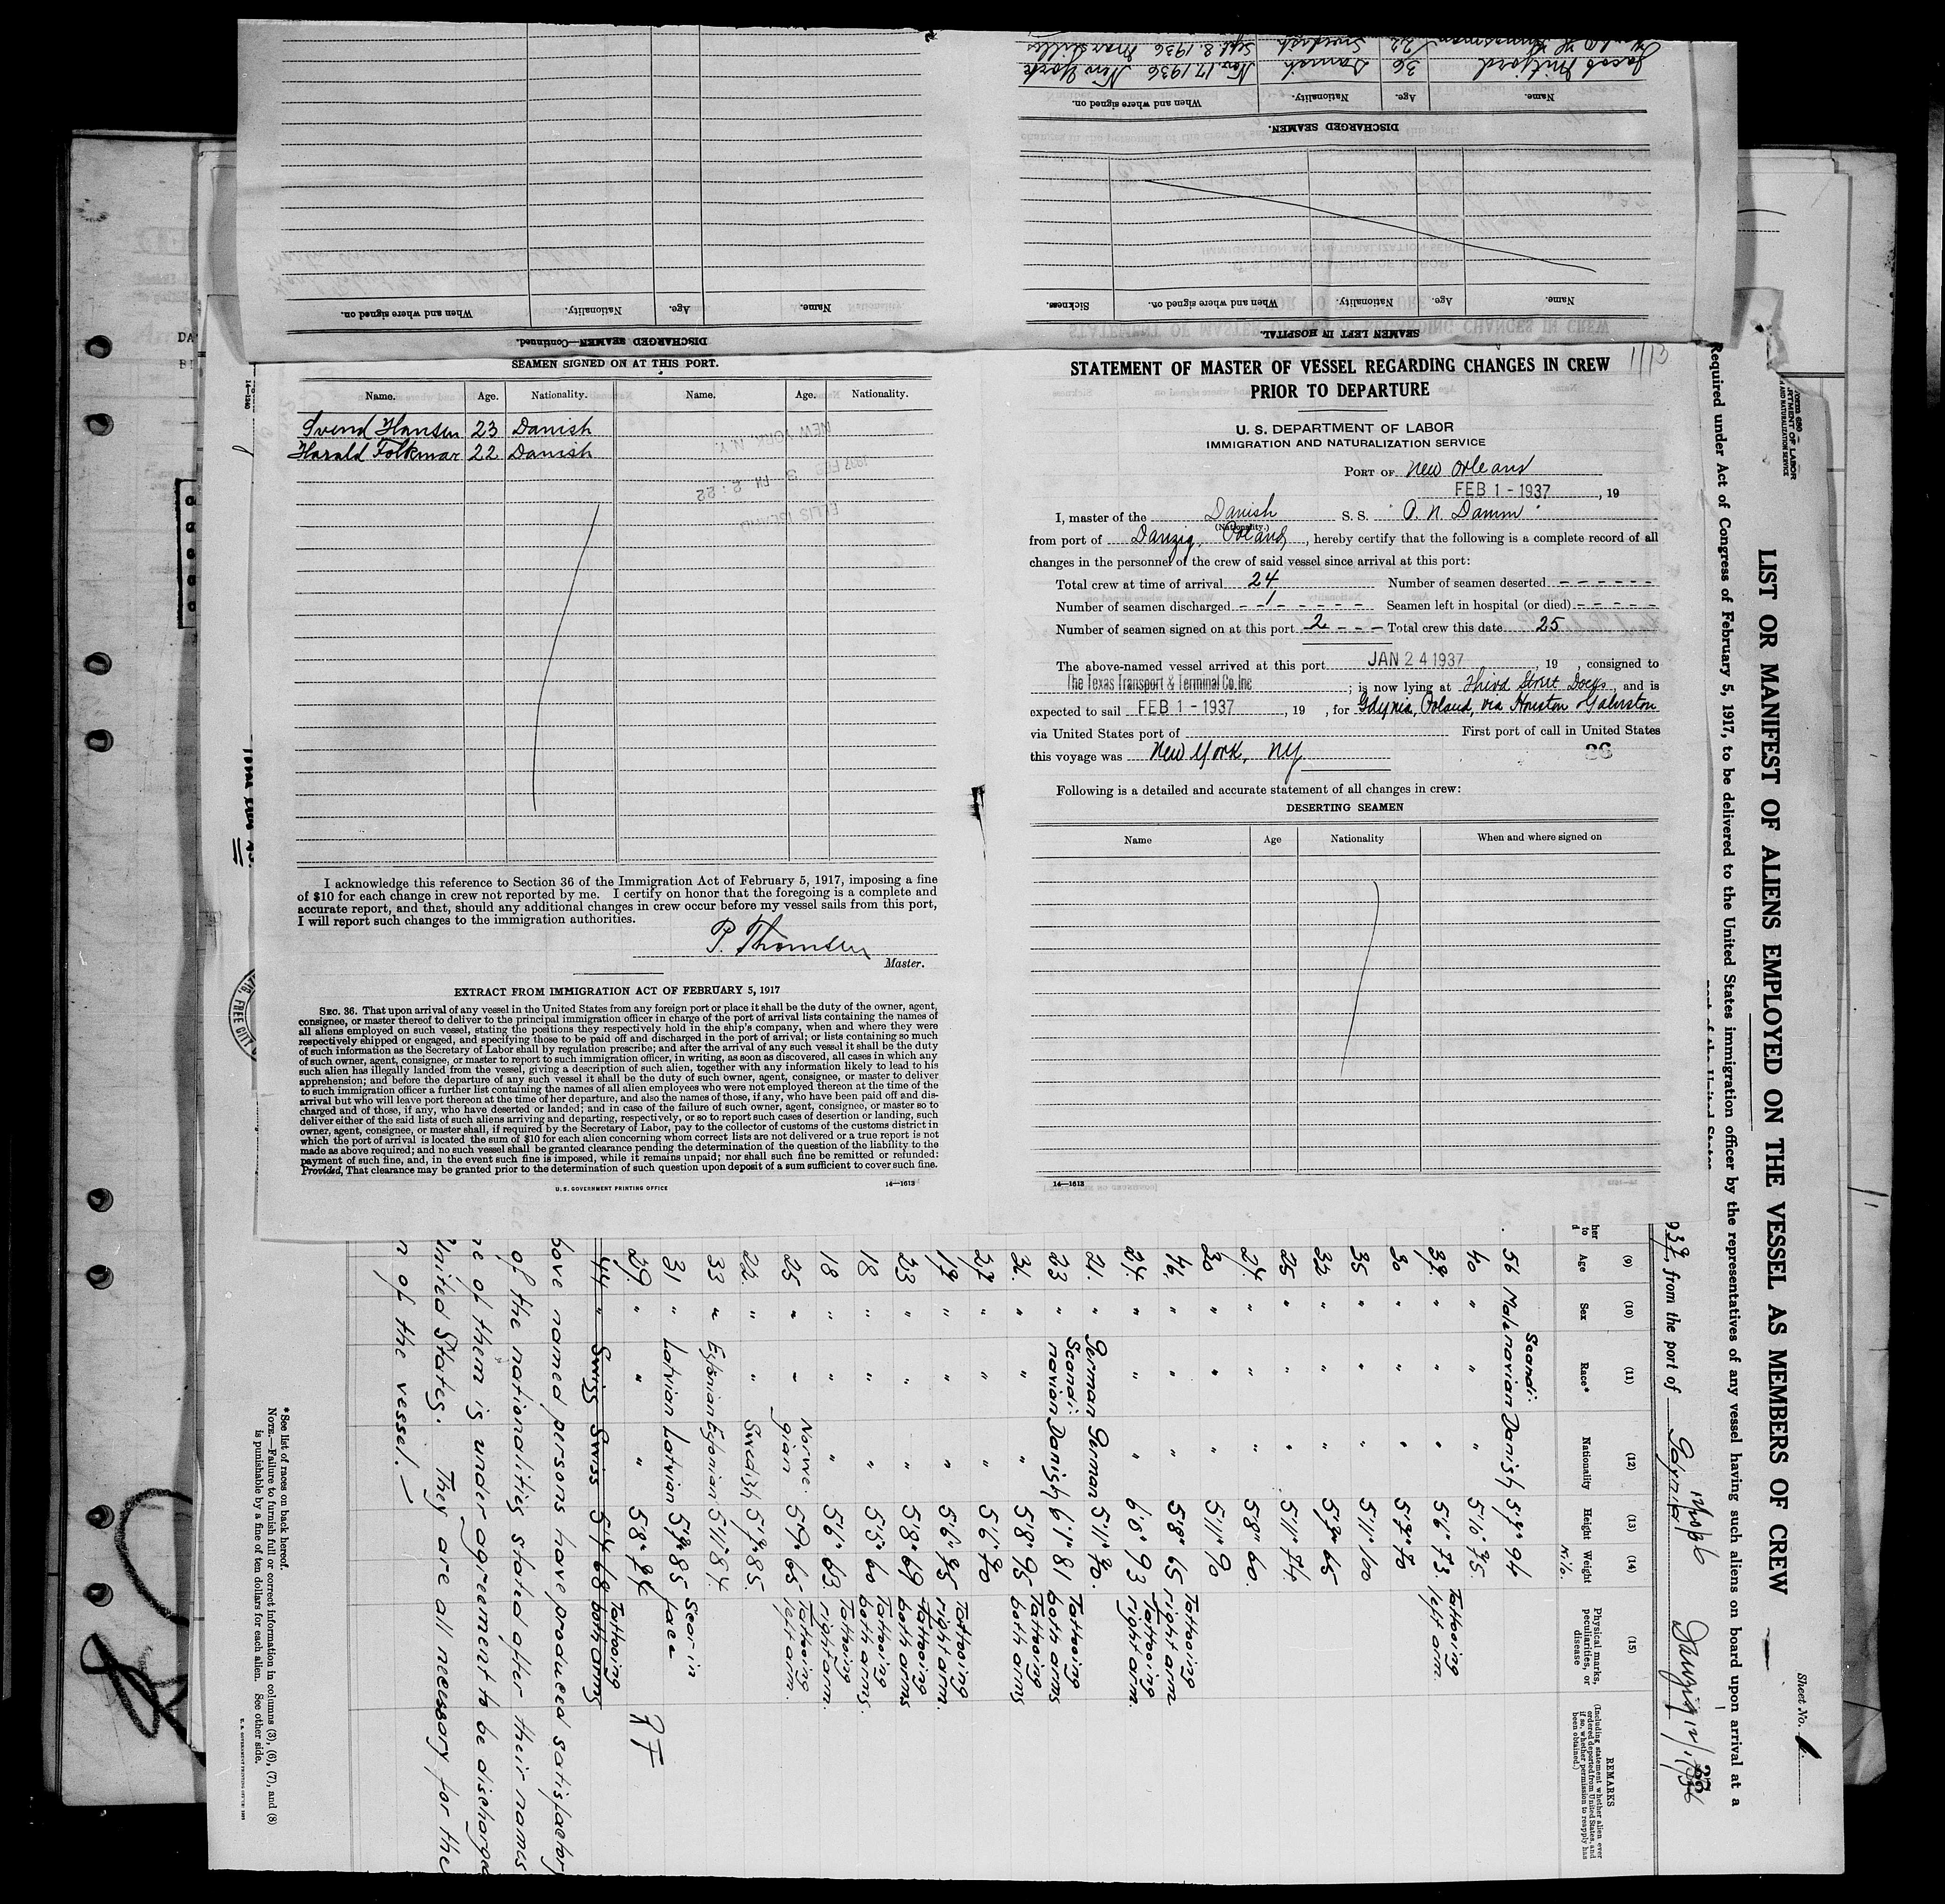 Jacob Mitford 36 Danish Nov. 17. 1936 New York
22 Swedish Sept. 8. 1936 Marseilles
Name. Age. Nationality. When and where signed on.
DISCHARGED SEAMEN.
Name. Age. Nationality. When and where signed on. Sickness.
SEAMEN LEFT IN HOSPITAL.
Name. Age. Nationality. When and where signed on.
DISCHARGED SEAMEN—Continued.
SEAMEN SIGNED ON AT THIS PORT.
Name. Age. Nationality. Name. Age. Nationality.
Svend Hansen 23 Danish
Harald Folkmar 22 Danish
NEW YORK, N.Y.
1937 FEB 3 PM 2:22
ELLIS ISLAND
I acknowledge this reference to Section 36 of the Immigration Act of February 5, 1917, imposing a fine
of $10 for each change in crew not reported by me. I certify on honor that the foregoing is a complete and
accurate report, and that, should any additional changes in crew occur before my vessel sails from this port,
I will report such changes to the immigration authorities.
P. Thomsen
Master.
EXTRACT FROM IMMIGRATION ACT OF FEBRUARY 5, 1917
SEC. 36. That upon arrival of any vessel in the United States from any foreign port or place it shall be the duty of the owner, agent,
consignee, or master thereof to deliver to the principal immigration officer in charge of the port of arrival lists containing the names of
all aliens employed on such vessel, stating the positions they respectively hold in the ship's company, when and where they were
respectively shipped or engaged, and specifying those to be paid off and discharged in the port of arrival; or lists containing so much
of such information as the Secretary of Labor shall by regulation prescribe; and after the arrival of any such vessel it shall be the duty
of such owner, agent, consignee, or master to report to such immigration officer, in writing, as soon as discovered, all cases in which any
such alien has illegally landed from the vessel, giving a description of such alien, together with any information likely to lead to his
apprehension; and before the departure of any such vessel it shall be the duty of such owner, agent, consignee, or master to deliver
to such immigration officer a further list containing the names of all alien employees who were not employed thereon at the time of the
arrival but who will leave port thereon at the time of her departure, and also the names of those, if any, who have been paid off and dis-
charged and of those, if any, who have deserted or landed; and in case of the failure of such owner, agent, consignee, or master so to
deliver either of the said lists of such aliens arriving and departing, respectively, or so to report such cases of desertion or landing, such
owner, agent, consignee, or master shall, if required by the Secretary of Labor, pay to the collector of customs of the customs district in
which the port of arrival is located the sum of $10 for each alien concerning whom correct lists are not delivered or a true report is not
made as above required; and no such vessel shall be granted clearance pending the determination of the question of the liability to the
payment of such fine, and, in the event such fine is imposed, while it remains unpaid; nor shall such fine be remitted or refunded:
Provided, That clearance may be granted prior to the determination of such question upon deposit of a sum sufficient to cover such fine.
U. S. GOVERNMENT PRINTING OFFICE 14—1613
STATEMENT OF MASTER OF VESSEL REGARDING CHANGES IN CREW
PRIOR TO DEPARTURE
U. S. DEPARTMENT OF LABOR
IMMIGRATION AND NATURALIZATION SERVICE
PORT OF New Orleans
FEB 1 - 1937, 19
I, master of the Danish S. S. "P. N. Damm"
(Nationality.)
from port of Danzig, Poland, hereby certify that the following is a complete record of all
changes in the personnel of the crew of said vessel since arrival at this port:
Total crew at time of arrival 24 Number of seamen deserted - - - - - -
Number of seamen discharged 1 Seamen left in hospital (or died) - - - - -
Number of seamen signed on at this port 2 Total crew this date 25
The above-named vessel arrived at this port JAN 24 1937, 19 , consigned to
The Texas Transport & Terminal Co. Inc ; is now lying at Third Street Docks, and is
expected to sail FEB 1 - 1937, 19 , for Gdynia, Poland, via Houston Galveston
via United States port of First port of call in United States
this voyage was New York, NY
Following is a detailed and accurate statement of all changes in crew:
DESERTING SEAMEN
Name Age Nationality When and where signed on
14—1613
Sheet No. 1
LIST OR MANIFEST OF ALIENS EMPLOYED ON THE VESSEL AS MEMBERS OF CREW
Required under Act of Congress of February 5, 1917, to be delivered to the United States immigration officer by the representatives of any vessel having such aliens on board upon arrival at a
from the port of Gdynia Danzig
(9) (10) (11) (12) (13) (14) (15)
Age Sex Race* Nationality Height Weight Physical marks, peculiarities, or disease REMARKS
Kilo.
(Including statement whether alien ever ordered deported from United States, and if so, whether permission to reapply has been obtained.)
56 Male Scandi-navian Danish 5'5" 94
40 " " " 5'10" 75
37 " " " 5'6" 73 Tattooing left arm
30 " " " 5'7" 70
35 " " " 5'11" 100
33 " " " 5'7" 65
25 " " " 5'11" 74
27 " " " 5'8" 60
30 " " " 5'11" 90
46 " " " 5'8" 65 Tattooing right arm
24 " " " 6'0" 93 Tattooing right arm
21 " German German 5'11" 70
23 " Scandi-navian Danish 6'1" 81 Tattooing both arms
31 " " " 5'8" 95 Tattooing both arms
27 " " " 5'6" 70
19 " " " 5'6" 75 Tattooing right arm
23 " " " 5'8" 69 Tattooing both arms
18 " " " 5'5" 60 Tattooing both arms
18 " " " 5'6" 63 Tattooing right arm
25 " " Norwe-gian 5'9" 65 Tattooing left arm
22 " " Swedish 5'7" 85
33 " Estonian Estonian 5'11" 84
31 " Latvian Latvian 5'7" 85 Scar in face
29 " " " 5'8" 74 RF
44 " Swiss Swiss 5'4" 68 Tattooing both arms
bove named persons have produced satisfactory
of the nationalities stated after their names
ne of them is under agreement to be discharged
United States. They are all necessary for the
n of the vessel. —
* See list of races on back hereof.
NOTE.—Failure to furnish full or correct information in columns (3), (6), (7), and (8)
is punishable by a fine of ten dollars for each alien. See other side.